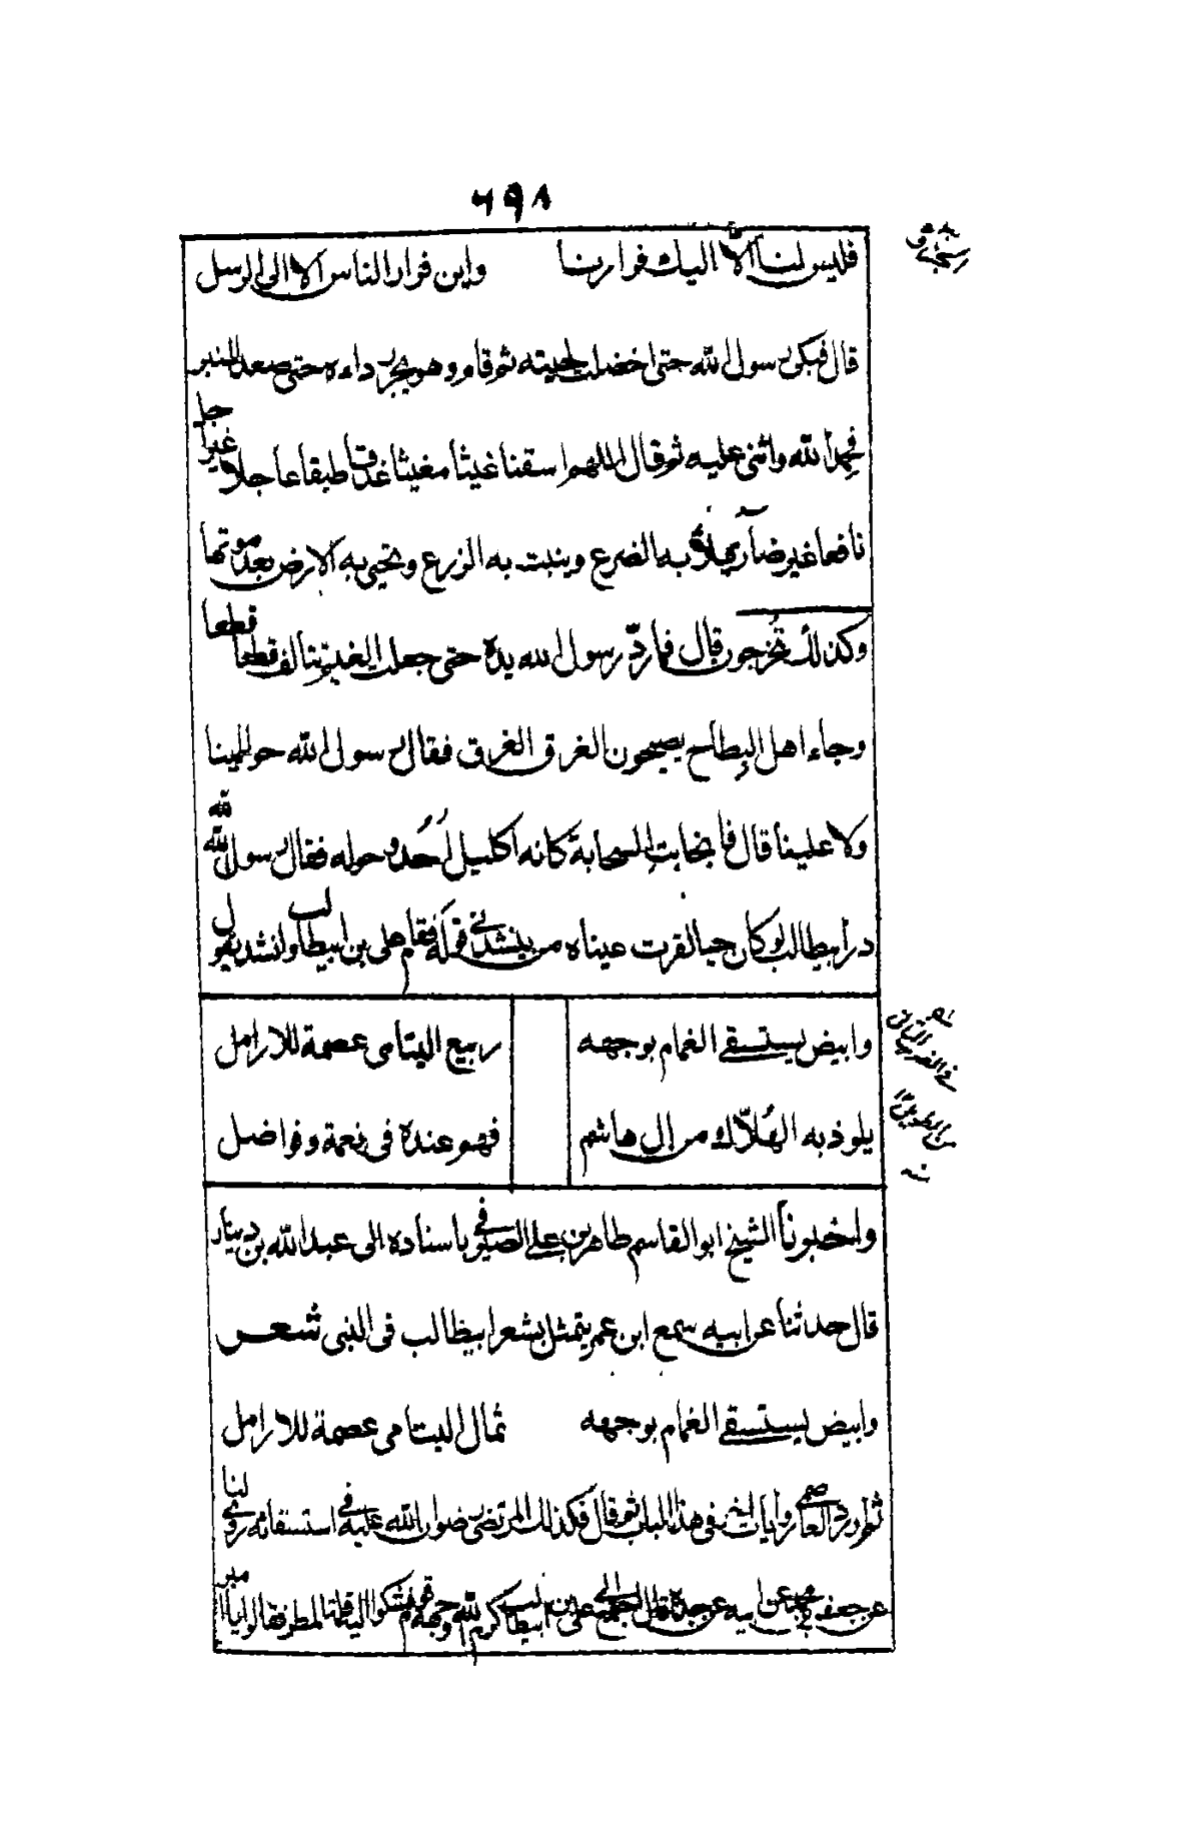 ٦٩٨
فليس لنا الا اليك فرارنا واين فرار الناس الا الى الرسل
قال فبكى رسول الله حتى اخضلت لحيته ثم قام وهو يجر رداءه حتى صعد المنبر
فحمد الله واثنى عليه ثم قال اللهم اسقنا غيثا مغيثا غدقا طبقا عاجلا غير اجل
نافعا غير ضار يملأ به الضرع وينبت به الزرع وتحيى به الارض بعد موتها
وكذلك تخرجون قال فما ردّ رسول الله يده حتى جعلت الغيث يتألف قطعا قطعا
وجاء اهل البطاح يصيحون الغرق الغرق فقال رسول الله حوالينا
ولا علينا قال فانجابت السحابة كانه اكليل احُد وحوله فقال رسول الله لله
در ابيطالب لو كان حيا لقرت عيناه من ينشدني قوله فقام على بن ابيطالب وانشد يقول
وابيض يستسقى الغمام بوجهه ربيع اليتامى عصمة للارامل
يلوذ به الهُلّاك من ال هاشم فهو عنده فى نعمة وفواضل
واخبرونا الشيخ ابو القاسم طاهر بن على الصيرفى باسناده الى عبد الله بن دينار
قال حدثنا عن ابيه سمع ابن عمر يتمثل بشعر ابيطالب فى النبى شعر
وابيض يستسقى الغمام بوجهه ثمال اليتامى عصمة للارامل
ثم اورد العاصمى روايات اخر فى هذا الباب ثم قال فكذلك المرتضى رضوان الله عليه فى استسقائه روى لنا
عن جعفر بن محمد عن ابيه عن جده قال على بن ابيطالب كرم الله وجهه قوم فشكوا اليه قلة المطر فقالوا يا امير